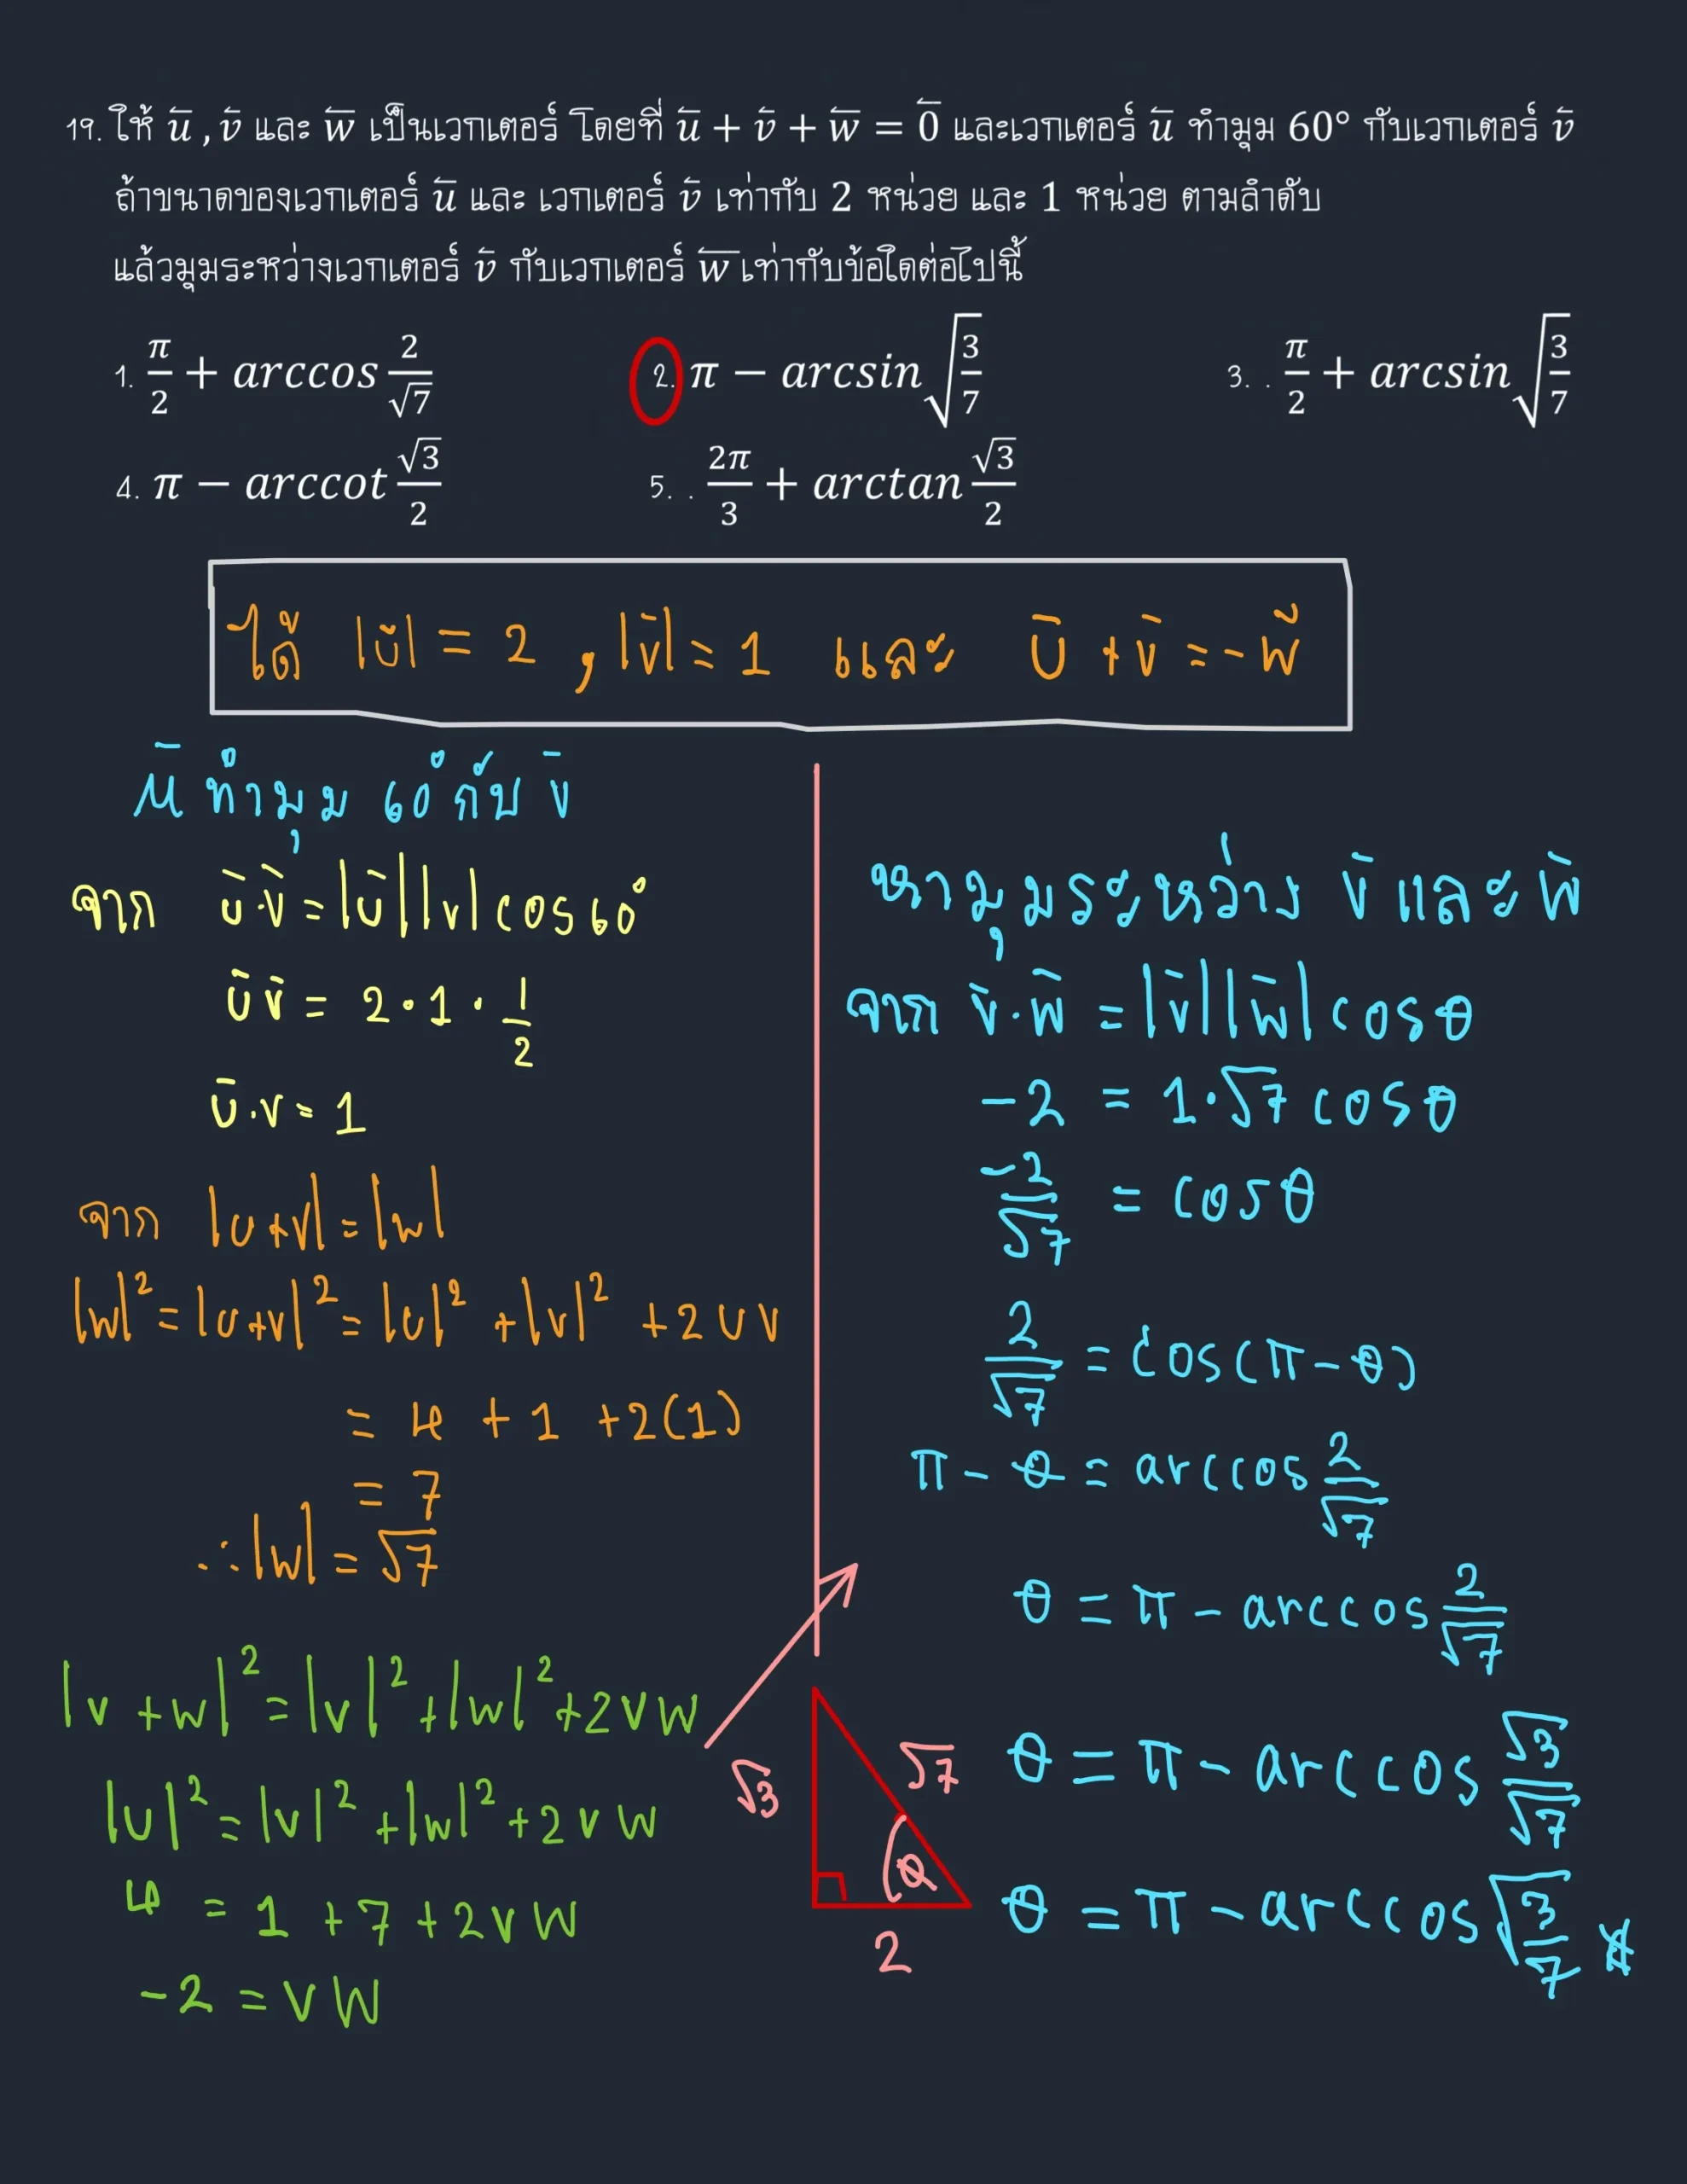 19. ให้ ū , v̄ และ w̄ เป็นเวกเตอร์ โดยที่ ū + v̄ + w̄ = 0̄ และเวกเตอร์ ū ทำมุม 60° กับเวกเตอร์ v̄
ถ้าขนาดของเวกเตอร์ ū และ เวกเตอร์ v̄ เท่ากับ 2 หน่วย และ 1 หน่วย ตามลำดับ
แล้วมุมระหว่างเวกเตอร์ v̄ กับเวกเตอร์ w̄ เท่ากับข้อใดต่อไปนี้
1. π/2 + arccos 2/√7 2. π − arcsin √(3/7) 3. . π/2 + arcsin √(3/7)
4. π − arccot √3/2 5. . 2π/3 + arctan √3/2
ได้ |ū| = 2 , |v̄| = 1 และ ū + v̄ = -w̄
ū ทำมุม 60° กับ v̄
จาก ū·v̄ = |ū||v| cos 60°
ū v̄ = 2·1·1/2
ū·v = 1
จาก |u+v| = |w|
|w|² = |u+v|² = |u|² + |v|² + 2uv
= 4 + 1 + 2(1)
= 7
∴ |w| = √7
|v + w|² = |v|² + |w|² + 2vw
|u|² = |v|² + |w|² + 2vw
4 = 1 + 7 + 2vw
-2 = vw
หามุมระหว่าง v̄ และ w̄
จาก v̄·w̄ = |v̄||w̄| cosθ
-2 = 1·√7 cosθ
-2/√7 = cosθ
2/√7 = cos(π - θ)
π - θ = arccos 2/√7
θ = π - arccos 2/√7
√3 √7 θ 2
θ = π - arccos √3/√7
θ = π - arccos √(3/7)